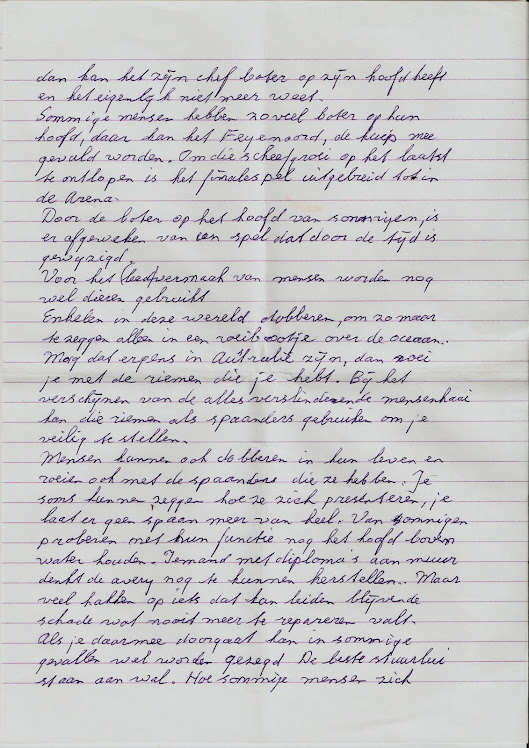 dan kan het zijn chef boter op zijn hoofd heeft
en het eigenlijk niet meer weet.
Sommige mensen hebben zoveel boter op hun
hoofd, daar kan het Feyenoord, de kuip mee
gevuld worden. Om die scheefgroei op het laatst
te ontlopen is het finalespel uitgebreid tot in
de Arena.
Door de boter op het hoofd van sommigen, is
er afgeweken van een spel dat door de tijd is
gewyzigd.
Voor het (leed)vermaak van mensen worden nog
wel dieren gebruikt
Enkelen in deze wereld dobberen, om zo maar
te zeggen allen in een roeibootje over de oceaan.
Mag dat ergens in Australië zijn, dan roei
je met de riemen die je hebt. Bij het
verschijnen van de alles verslindende mensenhaai
kan die riemen als spaanders gebruiken om je
veilig te stellen.
Mensen kunnen ook dobberen in hun leven en
roeien ook met de spaanders die ze hebben. Je
soms kunnen zeggen hoe ze zich presenteren, je
laat er geen spaan meer van heel. Van sommigen
proberen met hun functie nog het hoofd boven
water houden. Iemand met diploma's aan muur
denkt de avery nog te kunnen herstellen. Maar
veel hakken op iets dat kan leiden blijvende
schade wat nooit meer te repareren valt.
Als je daarmee doorgaat kan in sommige
gevallen wel worden gezegd De beste stuurlui
staan aan wal. Hoe sommige mensen zich